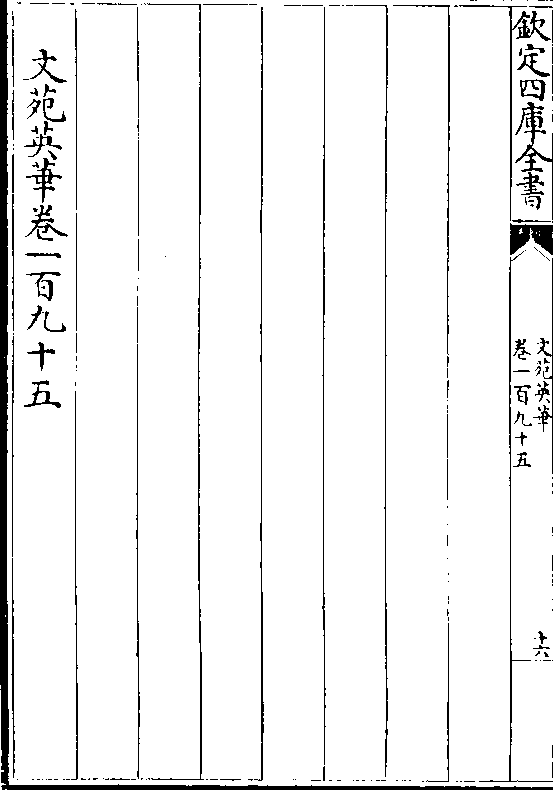 欽定四庫全書
文苑英華
卷一百九十五
十六
文苑英華卷一百九十五